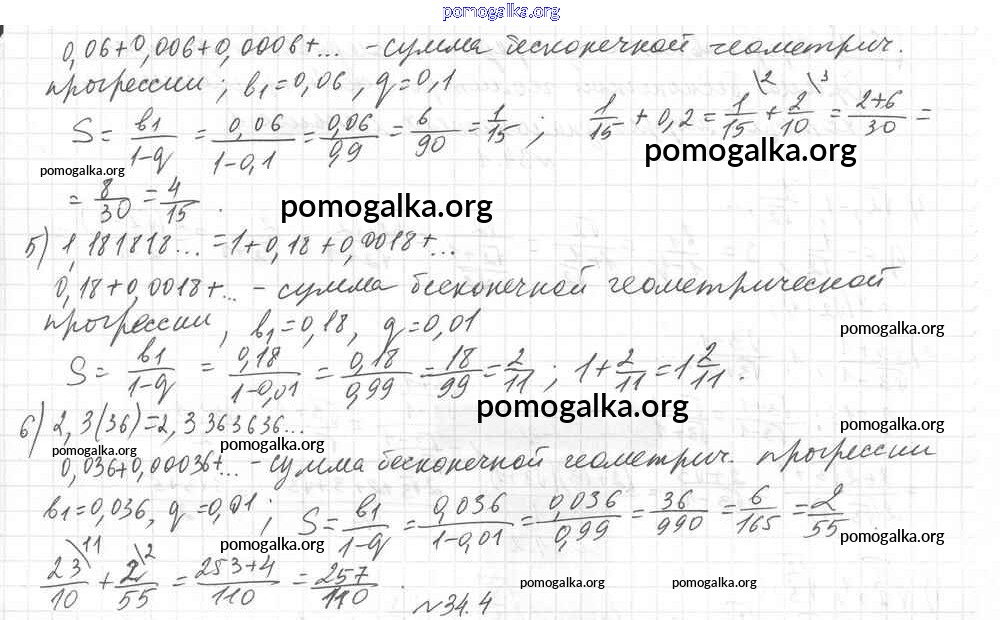 pomogalka.org
0,06+0,006+0,0006+... - сумма бесконечной геометрич.
прогрессии; b1=0,06, q=0,1
S = b1/1-q = 0,06/1-0,1 = 0,06/0,9 = 6/90 = 1/15 ; 1/15 + 0,2 = 1/15 \2 + 2/10 \3 = 2+6/30 =
pomogalka.org
pomogalka.org
= 8/30 = 4/15 .
pomogalka.org
5) 1,181818... = 1+0,18+0,0018+...
0,18+0,0018+... - сумма бесконечной геометрической
прогрессии, b1=0,18, q=0,01
pomogalka.org
S = b1/1-q = 0,18/1-0,01 = 0,18/0,99 = 18/99 = 2/11 ; 1+2/11 = 1 2/11 .
pomogalka.org
6) 2,3(36)=2,3363636...
pomogalka.org
pomogalka.org
pomogalka.org
0,036+0,00036+... - сумма бесконечной геометрич. прогрессии
b1=0,036, q=0,01 ; S = b1/1-q = 0,036/1-0,01 = 0,036/0,99 = 36/990 = 6/165 = 2/55
pomogalka.org
pomogalka.org
23/10 \11 + 2/55 \2 = 253+4/110 = 257/110 .
pomogalka.org
pomogalka.org
№34.4